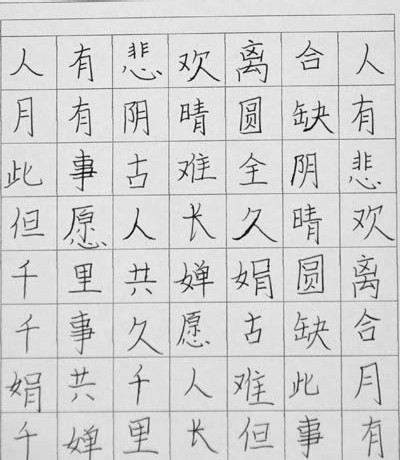 人有悲欢离合人
月有阴晴圆缺有
此事古难全阴悲
但愿人长久晴欢
千里共婵娟圆离
千事久愿古缺合
娟共千人难此月
千婵里长但事有